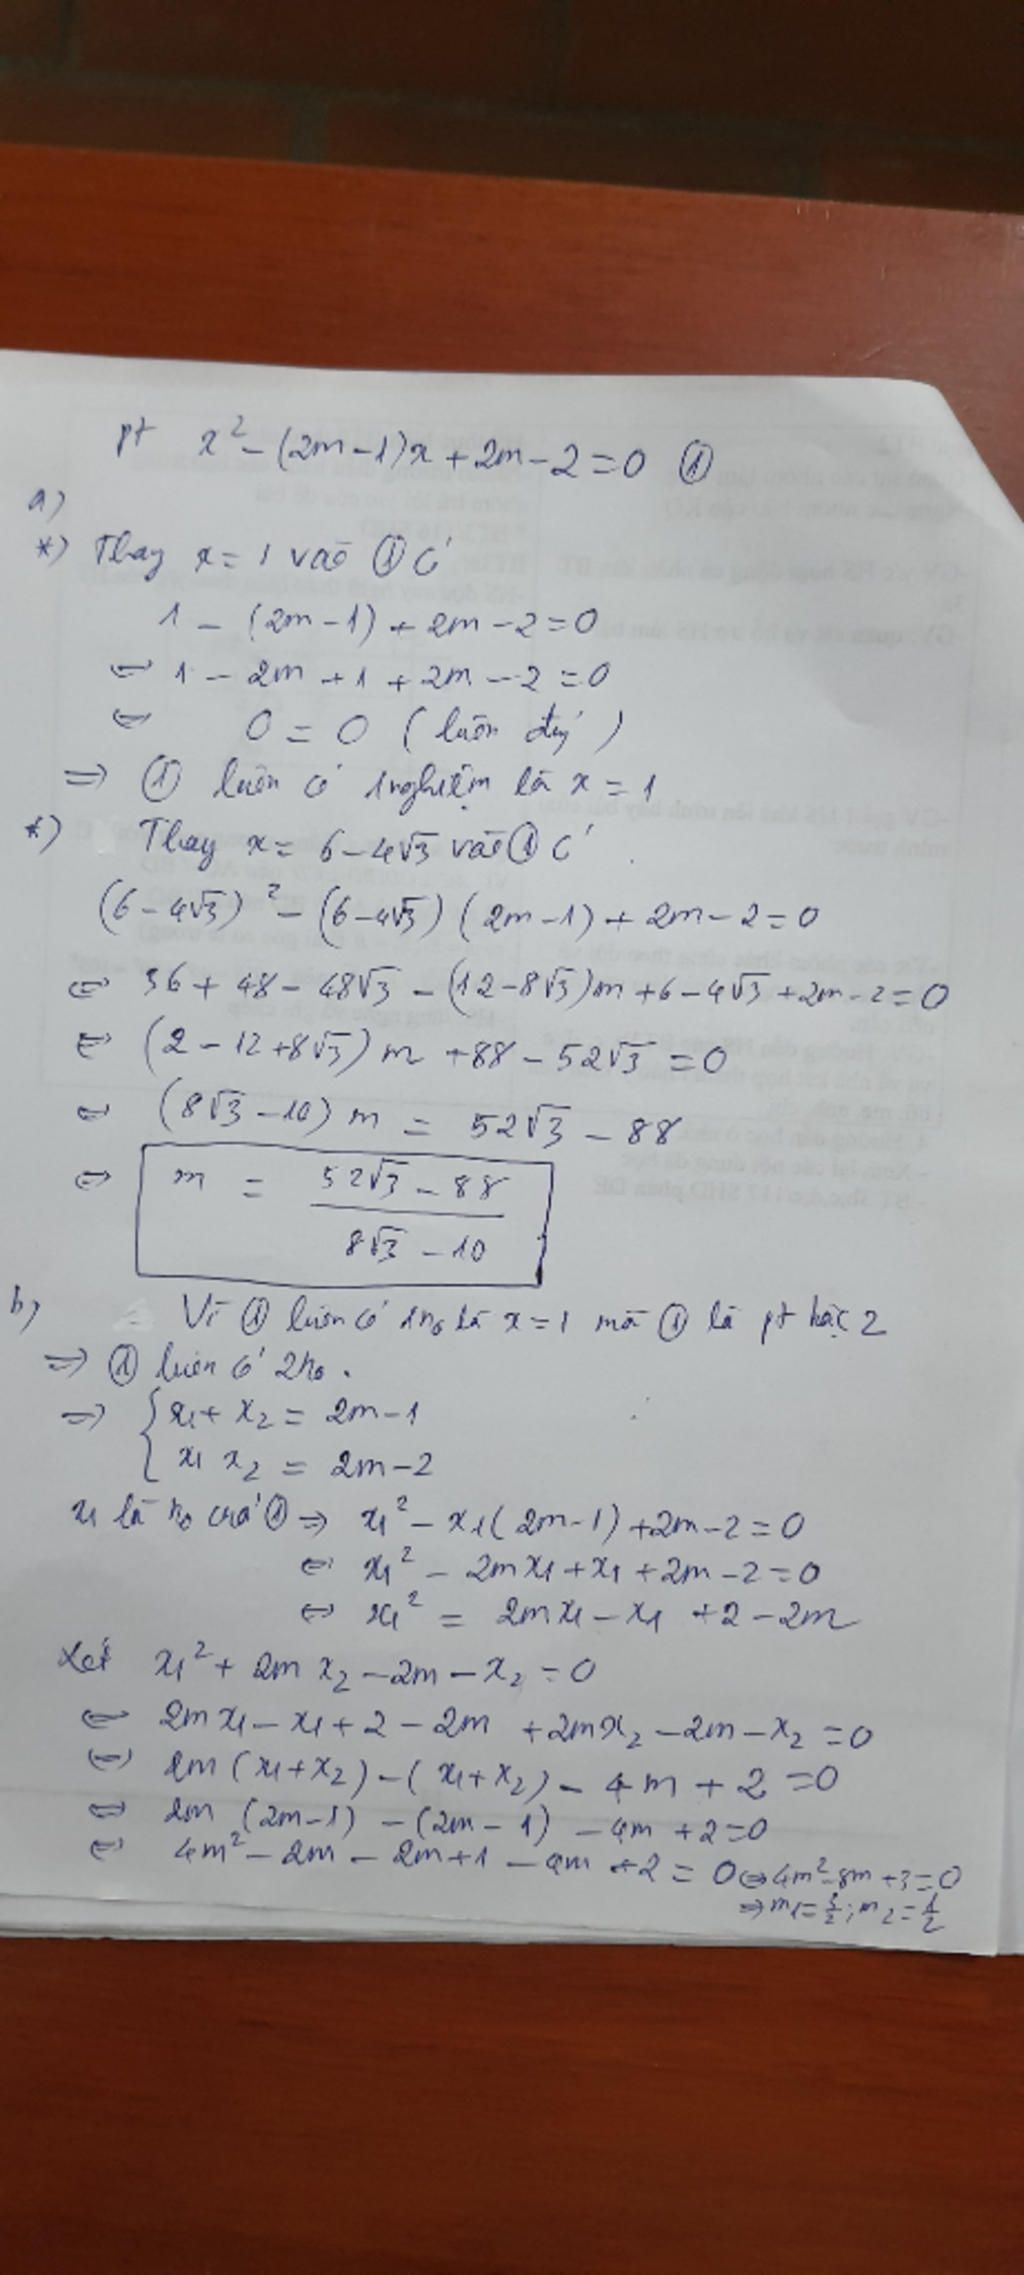 pt x² - (2m-1)x + 2m - 2 = 0 ①
a)
*) Thay x = 1 vào ① có
1 - (2m-1) + 2m - 2 = 0
⇔ 1 - 2m + 1 + 2m - 2 = 0
⇔ 0 = 0 (luôn đúng)
⇒ ① luôn có 1 nghiệm là x = 1
*) Thay x = 6 - 4√3 vào ① có
(6-4√3)² - (6-4√3)(2m-1) + 2m - 2 = 0
⇔ 36 + 48 - 48√3 - (12-8√3)m + 6 - 4√3 + 2m - 2 = 0
⇔ (2 - 12 + 8√3)m + 88 - 52√3 = 0
⇔ (8√3 - 10)m = 52√3 - 88
⇔ m = (52√3 - 88)/(8√3 - 10)
b) Vì ① luôn có 1 no là x = 1 mà ① là pt bậc 2
⇒ ① luôn có 2 no.
⇒ { x1 + x2 = 2m - 1
x1 x2 = 2m - 2
x1 là no của ① ⇒ x1² - x1(2m-1) + 2m - 2 = 0
⇔ x1² - 2mx1 + x1 + 2m - 2 = 0
⇔ x1² = 2mx1 - x1 + 2 - 2m
Xét x1² + 2mx2 - 2m - x2 = 0
⇔ 2mx1 - x1 + 2 - 2m + 2mx2 - 2m - x2 = 0
⇔ 2m(x1+x2) - (x1+x2) - 4m + 2 = 0
⇔ 2m(2m-1) - (2m-1) - 4m + 2 = 0
⇔ 4m² - 2m - 2m + 1 - 4m + 2 = 0 ⇔ 4m² - 8m + 3 = 0
⇒ m1 = 3/2; m2 = 1/2